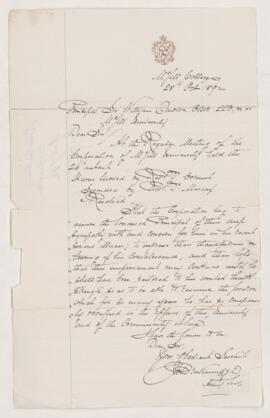 McGill College
28th Oct. 1892
Principal Sir William Dawson
McGill University
Dear Sir
At the Regular Meeting of the
Corporation of McGill University held the
26th instant
It was Moved by
Seconded by Murray
& Resolved
That the Corporation beg to
assure the Honoured Principal of their deep
sympathy with and concern for him in his recent
serious illness; to express their thankfulness on
hearing of his convalescence, and their hope
that this improvement may continue until he
shall have been restored to his wonted health
& strength so as to be able to resume the position
which for so many years he has so
occupied in the affairs of this University
and of the Community at large
I have the honor to be
Dear Sir
Your Obedient Servant